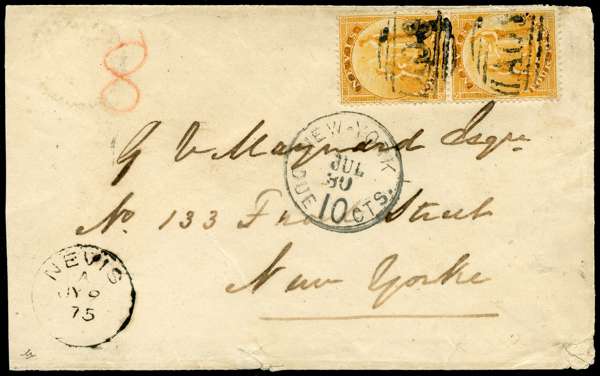 8
A09
A09
G V Maynard Esqre
NEW-YORK
JUL
30
DUE 10 CTS.
No. 133 Street
New Yorke
NEVIS
A
JY 9
75